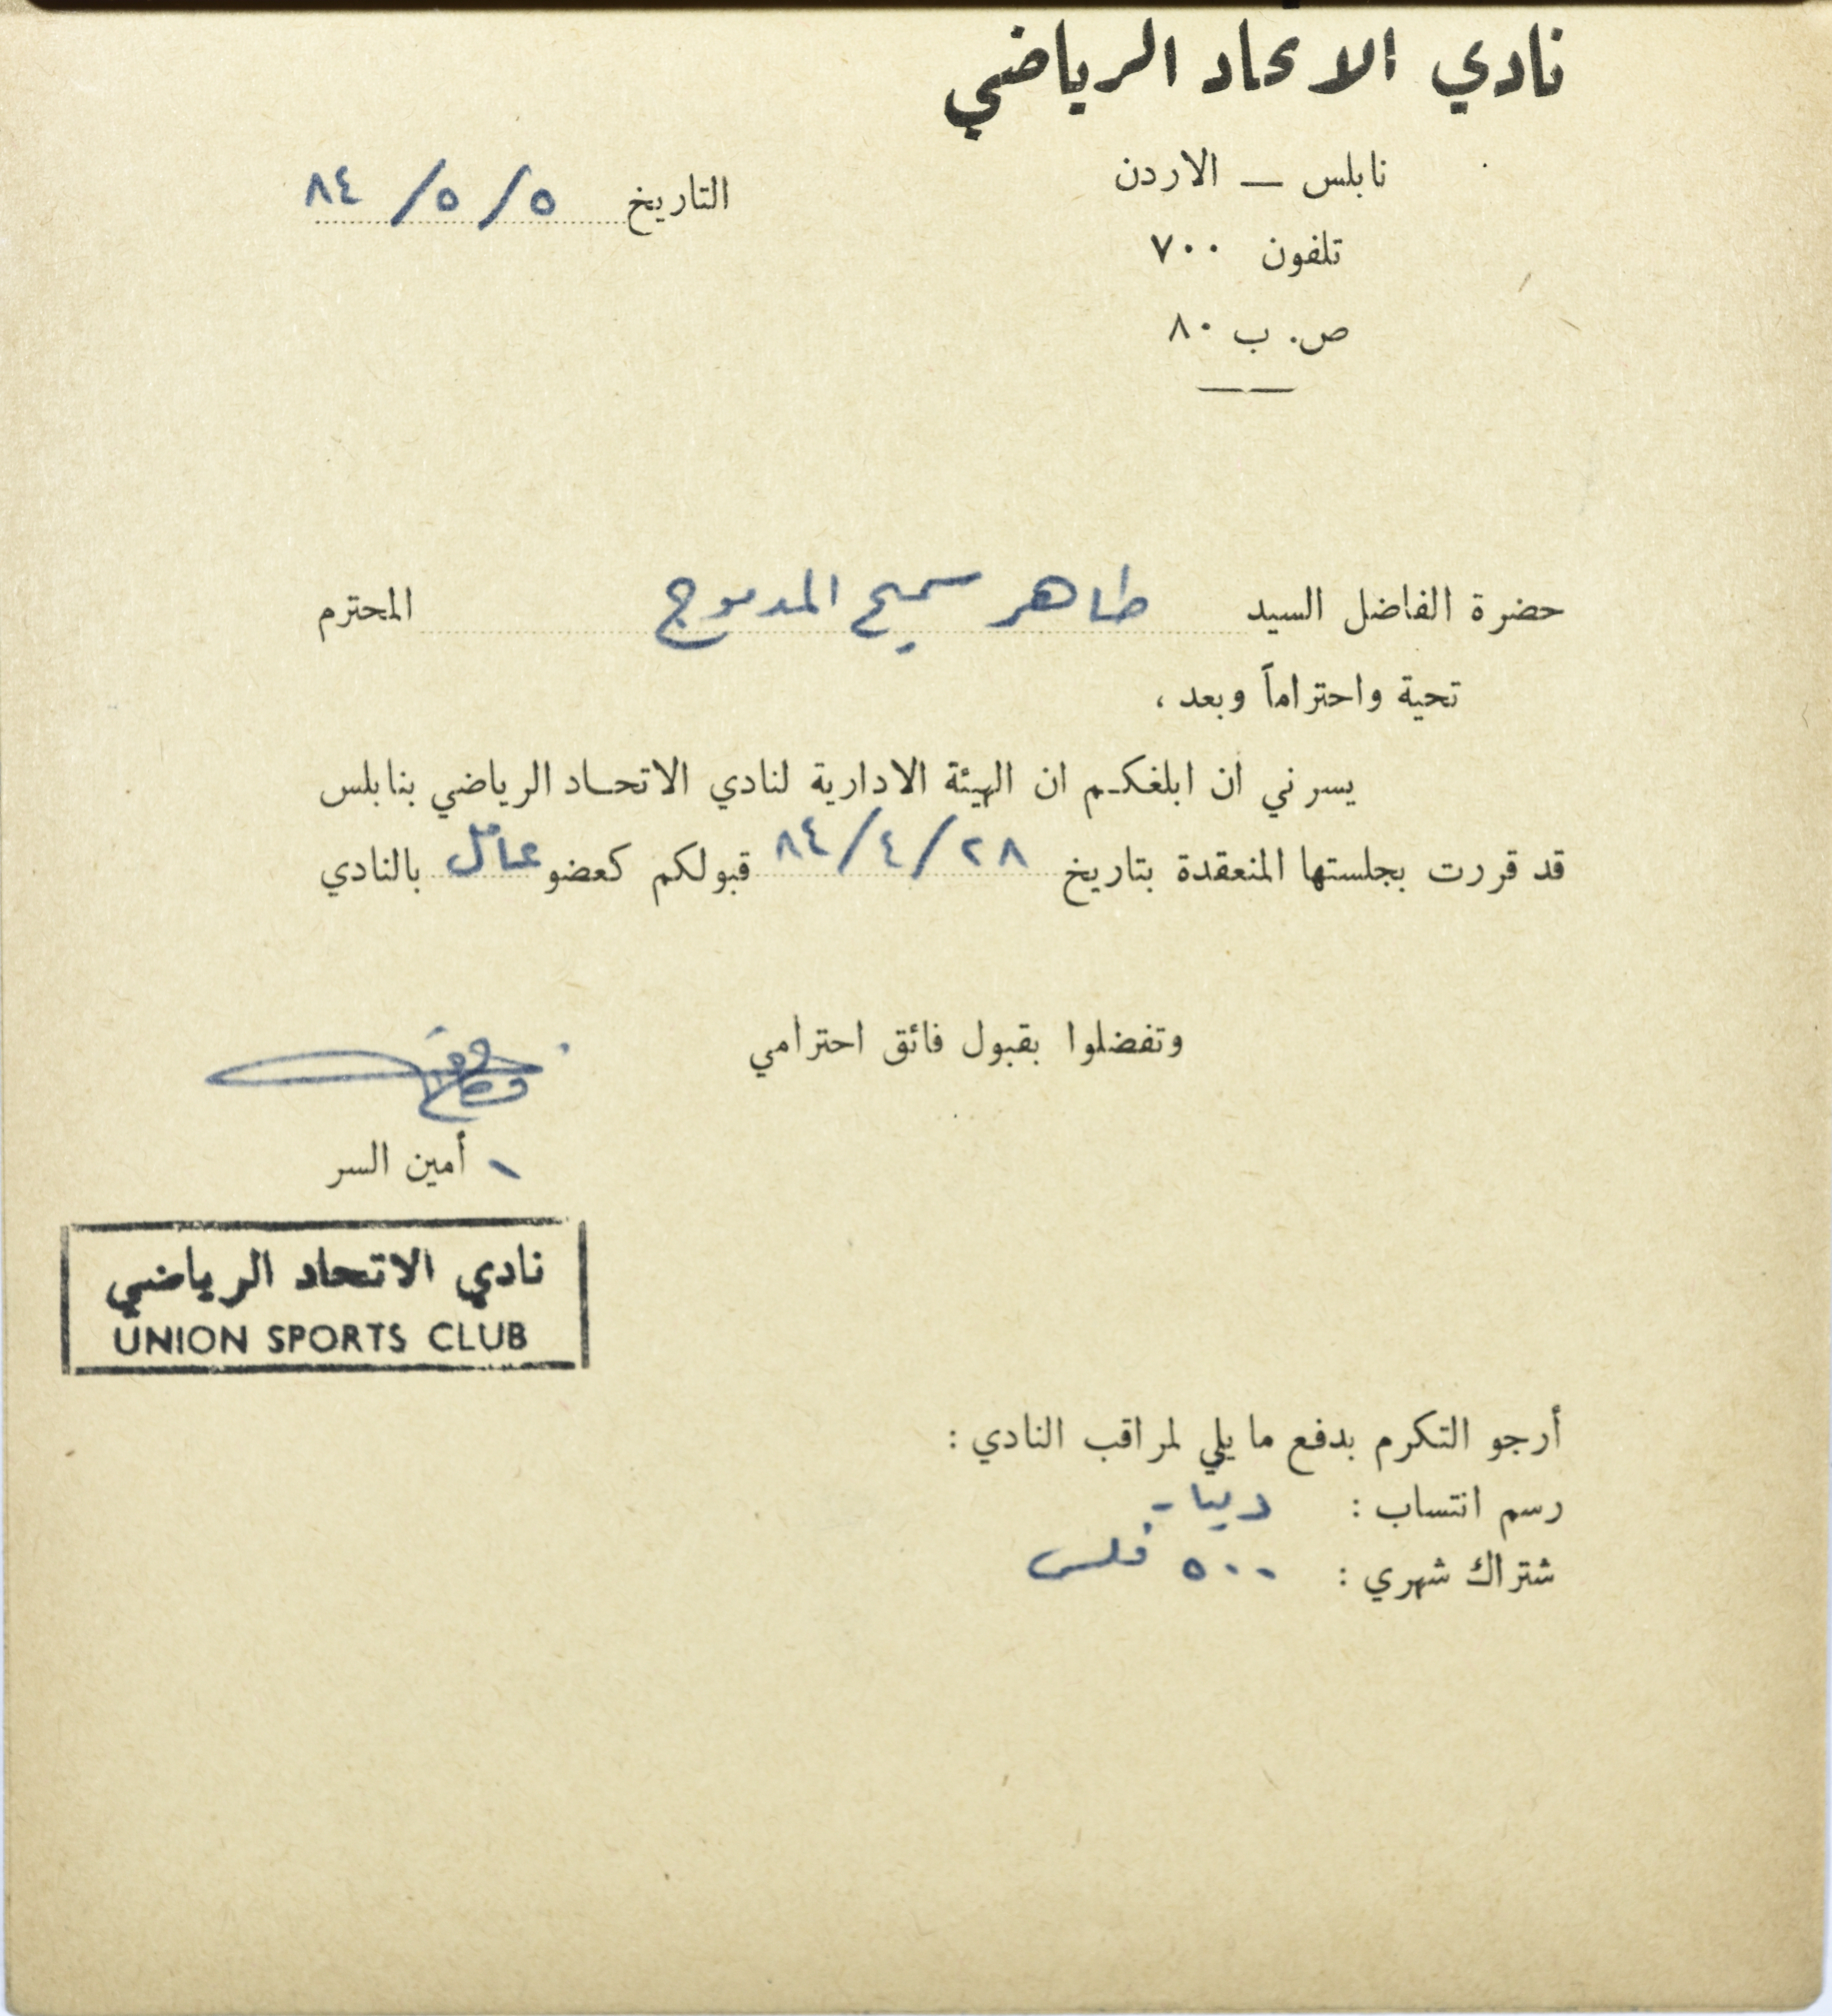 نادي الاتحاد الرياضي
نابلس — الاردن
التاريخ ٥ / ٥ / ٨٤
تلفون ٧٠٠
ص. ب ٨٠
حضرة الفاضل السيد طاهر سميح المدموج المحترم
تحية واحتراماً وبعد ،
يسرني ان ابلغكم ان الهيئة الادارية لنادي الاتحاد الرياضي بنابلس
قد قررت بجلستها المنعقدة بتاريخ ٢٨/٤/٨٤ قبولكم كعضو عامل بالنادي
وتفضلوا بقبول فائق احترامي
أمين السر
نادي الاتحاد الرياضي
UNION SPORTS CLUB
أرجو التكرم بدفع ما يلي لمراقب النادي :
رسم انتساب :
شتراك شهري : ٥٠٠ فلس